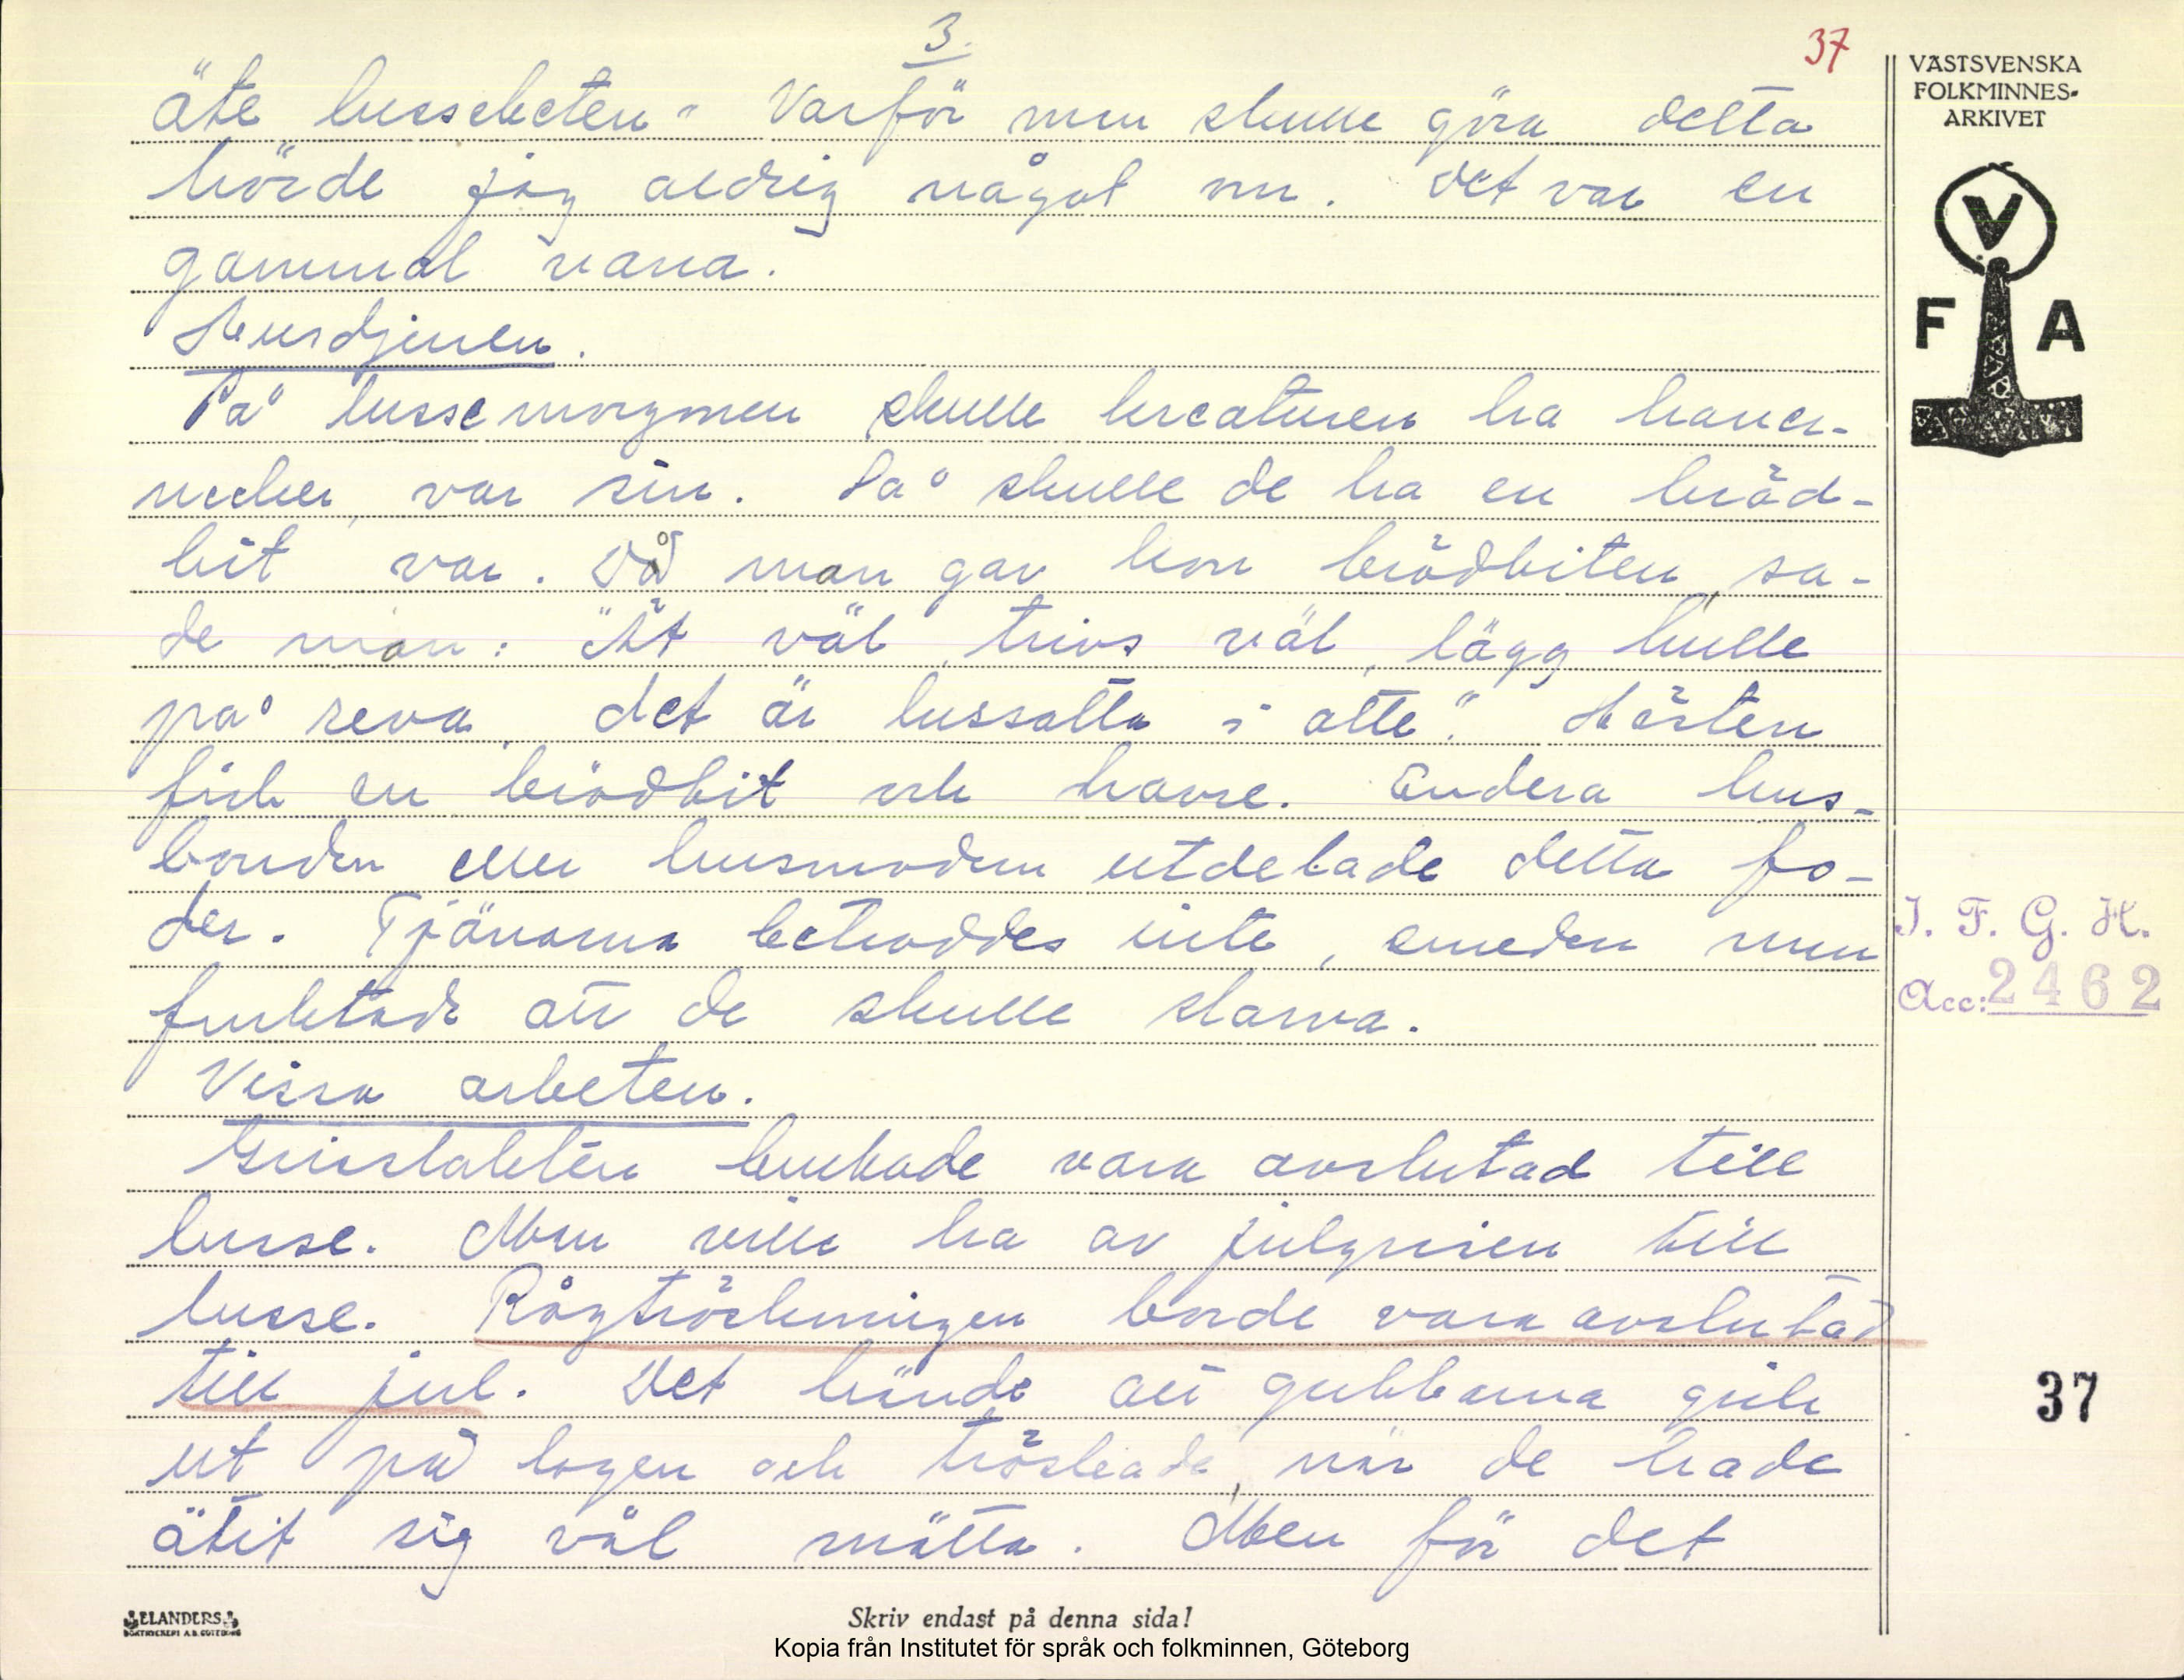 3.
37
äte lussebeten". Varför man skulle göra detta
hörde jag aldrig något om. Det var en
gammal vana.
Husdjuren.
På lussemorgonen skulle kreaturen ha haver-
necker, var sin. Så skulle de ha en bröd-
bit var. Då man gav kon brödbiten, sa-
de man: "Ät väl, trivs väl, lägg hulle
på reva, det är lussatta i atte." Hästen
fick en brödbit och havre. Endera hus-
bonden eller husmodern utdelade detta fo-
der. Tjänarna betroddes inte, emedan man
fruktade att de skulle slarva.
Vissa arbeten.
Grisslakten brukade vara avslutad till
lusse. Man ville ha av julgrisen till
lusse. Rågtröskningen borde vara avslutad
till jul. Det hände att gubbarna gick
ut på logen och tröskade, när de hade
ätit sig väl mätta. Men för det
VÄSTSVENSKA
FOLKMINNES-
ARKIVET
V
F A
I. F. G. H.
Acc: 2462
37
ELANDERS
BOKTRYCKERI A.B. GÖTEBORG
Skriv endast på denna sida!
Kopia från Institutet för språk och folkminnen, Göteborg